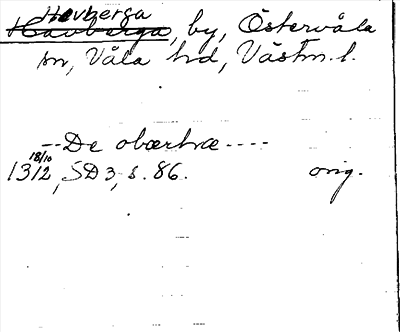 Hovberga
Havberga, by, Östervåla
sn, Våla hd, Västm. l.
--De obærhræ----
18/10
1312, SD 3, s. 86. orig.